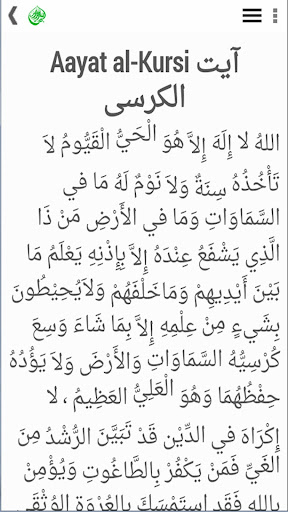 Aayat al-Kursi آیت
الکرسی
اللهُ لا إِلَهَ إِلاَّ هُوَ الْحَيُّ الْقَيُّومُ لاَ
تَأْخُذُهُ سِنَةٌ وَلاَ نَوْمٌ لَهُ مَا فِي
السَّمَاوَاتِ وَمَا فِي الأَرْضِ مَنْ ذَا
الَّذِي يَشْفَعُ عِنْدَهُ إِلاَّ بِإِذْنِهِ يَعْلَمُ مَا
بَيْنَ أَيْدِيهِمْ وَمَاخَلْفَهُمْ وَلاَيُحِيطُونَ
بِشَيءٍ مِنْ عِلْمِهِ إِلاَّ بِمَا شَاءَ وَسِعَ
كُرْسِيُّهُ السَّمَاوَاتِ وَالأَرْضَ وَلاَ يَؤُدُهُ
حِفْظُهُمَا وَهُوَ الْعَلِيُّ العَظِيمُ ، لا
إِكْرَاهَ فِي الدِّيْنِ قَدْ تَبَيَّنَ الرُّشْدُ مِنَ
الغَيِّ فَمَنْ يَكْفُرْ بِالطَّاغُوتِ وَيُؤْمِنْ
بِاللهِ فَقَدِ اسْتَمْسَكَ بِالعُرْوَةِ الوُثْقَى